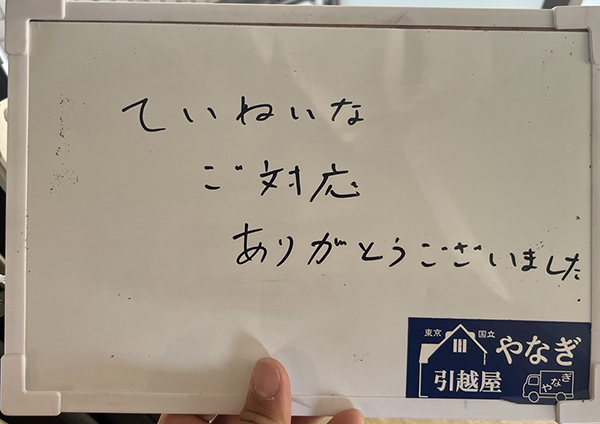 ていねいな
ご対応
ありがとうございました
東京 国立
やなぎ
引越屋
やなぎ